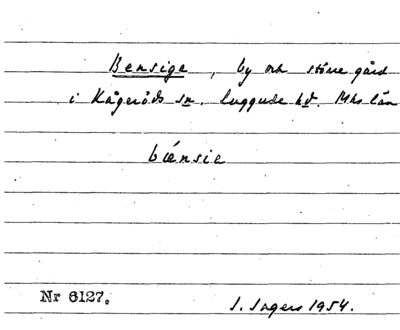 Bensige, by och större gård
i Kågeröds sn. Luggude hd. Mhs län
bǽnsie
Nr 6127.
I. Ingers 1954.